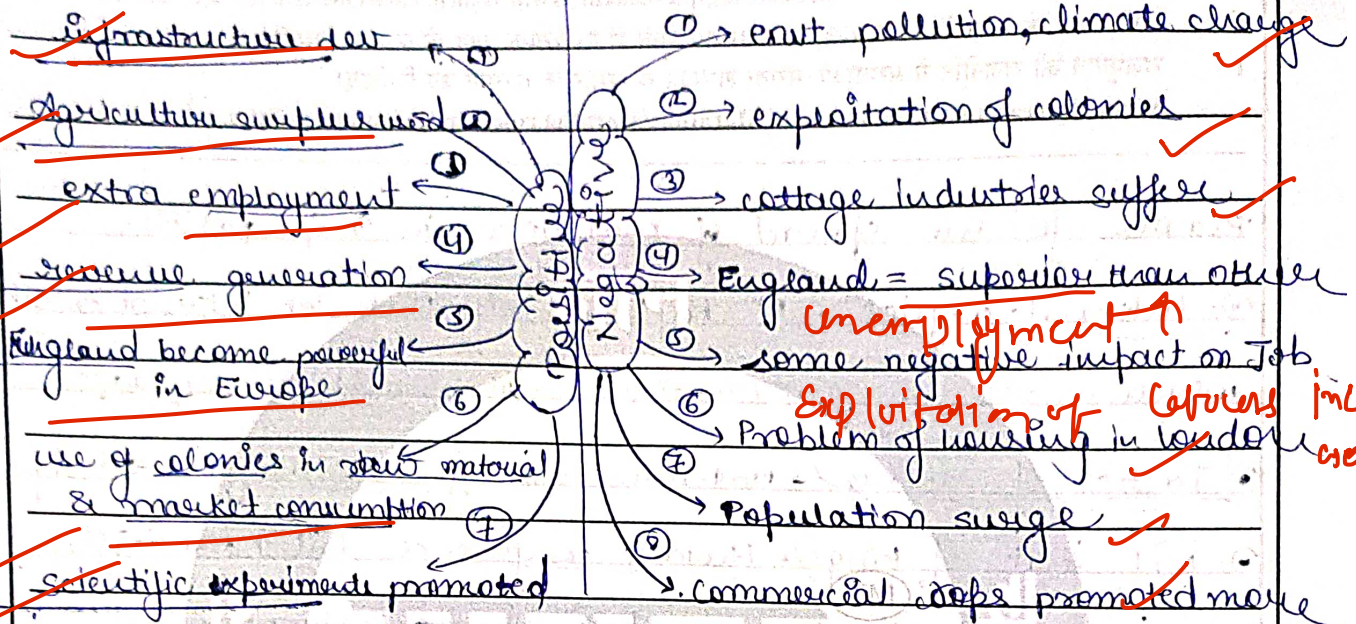 infrastructure dev ①
Agriculture surplus used ②
extra employment ③
revenue generation ④
England become powerful ⑤
in Europe
⑥
use of colonies in raw material
& market consumption
⑦
scientific experiments promoted
Positive
Negative
① → envt pollution, climate change
② → exploitation of colonies
③ → cottage industries suffer
④ → England = superior than other
unemployment ↑
⑤ → some negative impact on Job
Exploitation of Labours
⑥ Problem of housing in London
⑦ Population surge
⑧ commercial crops promoted more